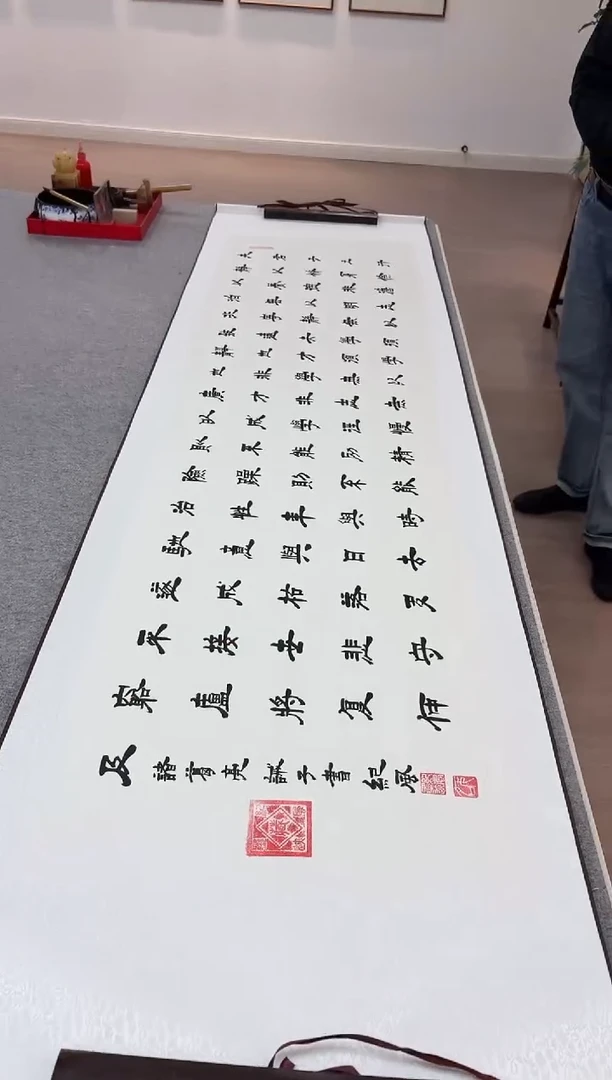 夫君子之行
靜以修身儉
以養德非澹
泊無以明志
非寧靜無以
致遠夫學須
靜也才須學
也非學無以
廣才非志無
以成學淫慢
則不能勵精
險躁則不能
治性年與時
馳意與日去
遂成枯落多
不接世悲守
窮廬將复何
及 諸葛亮 誡子書 紀風